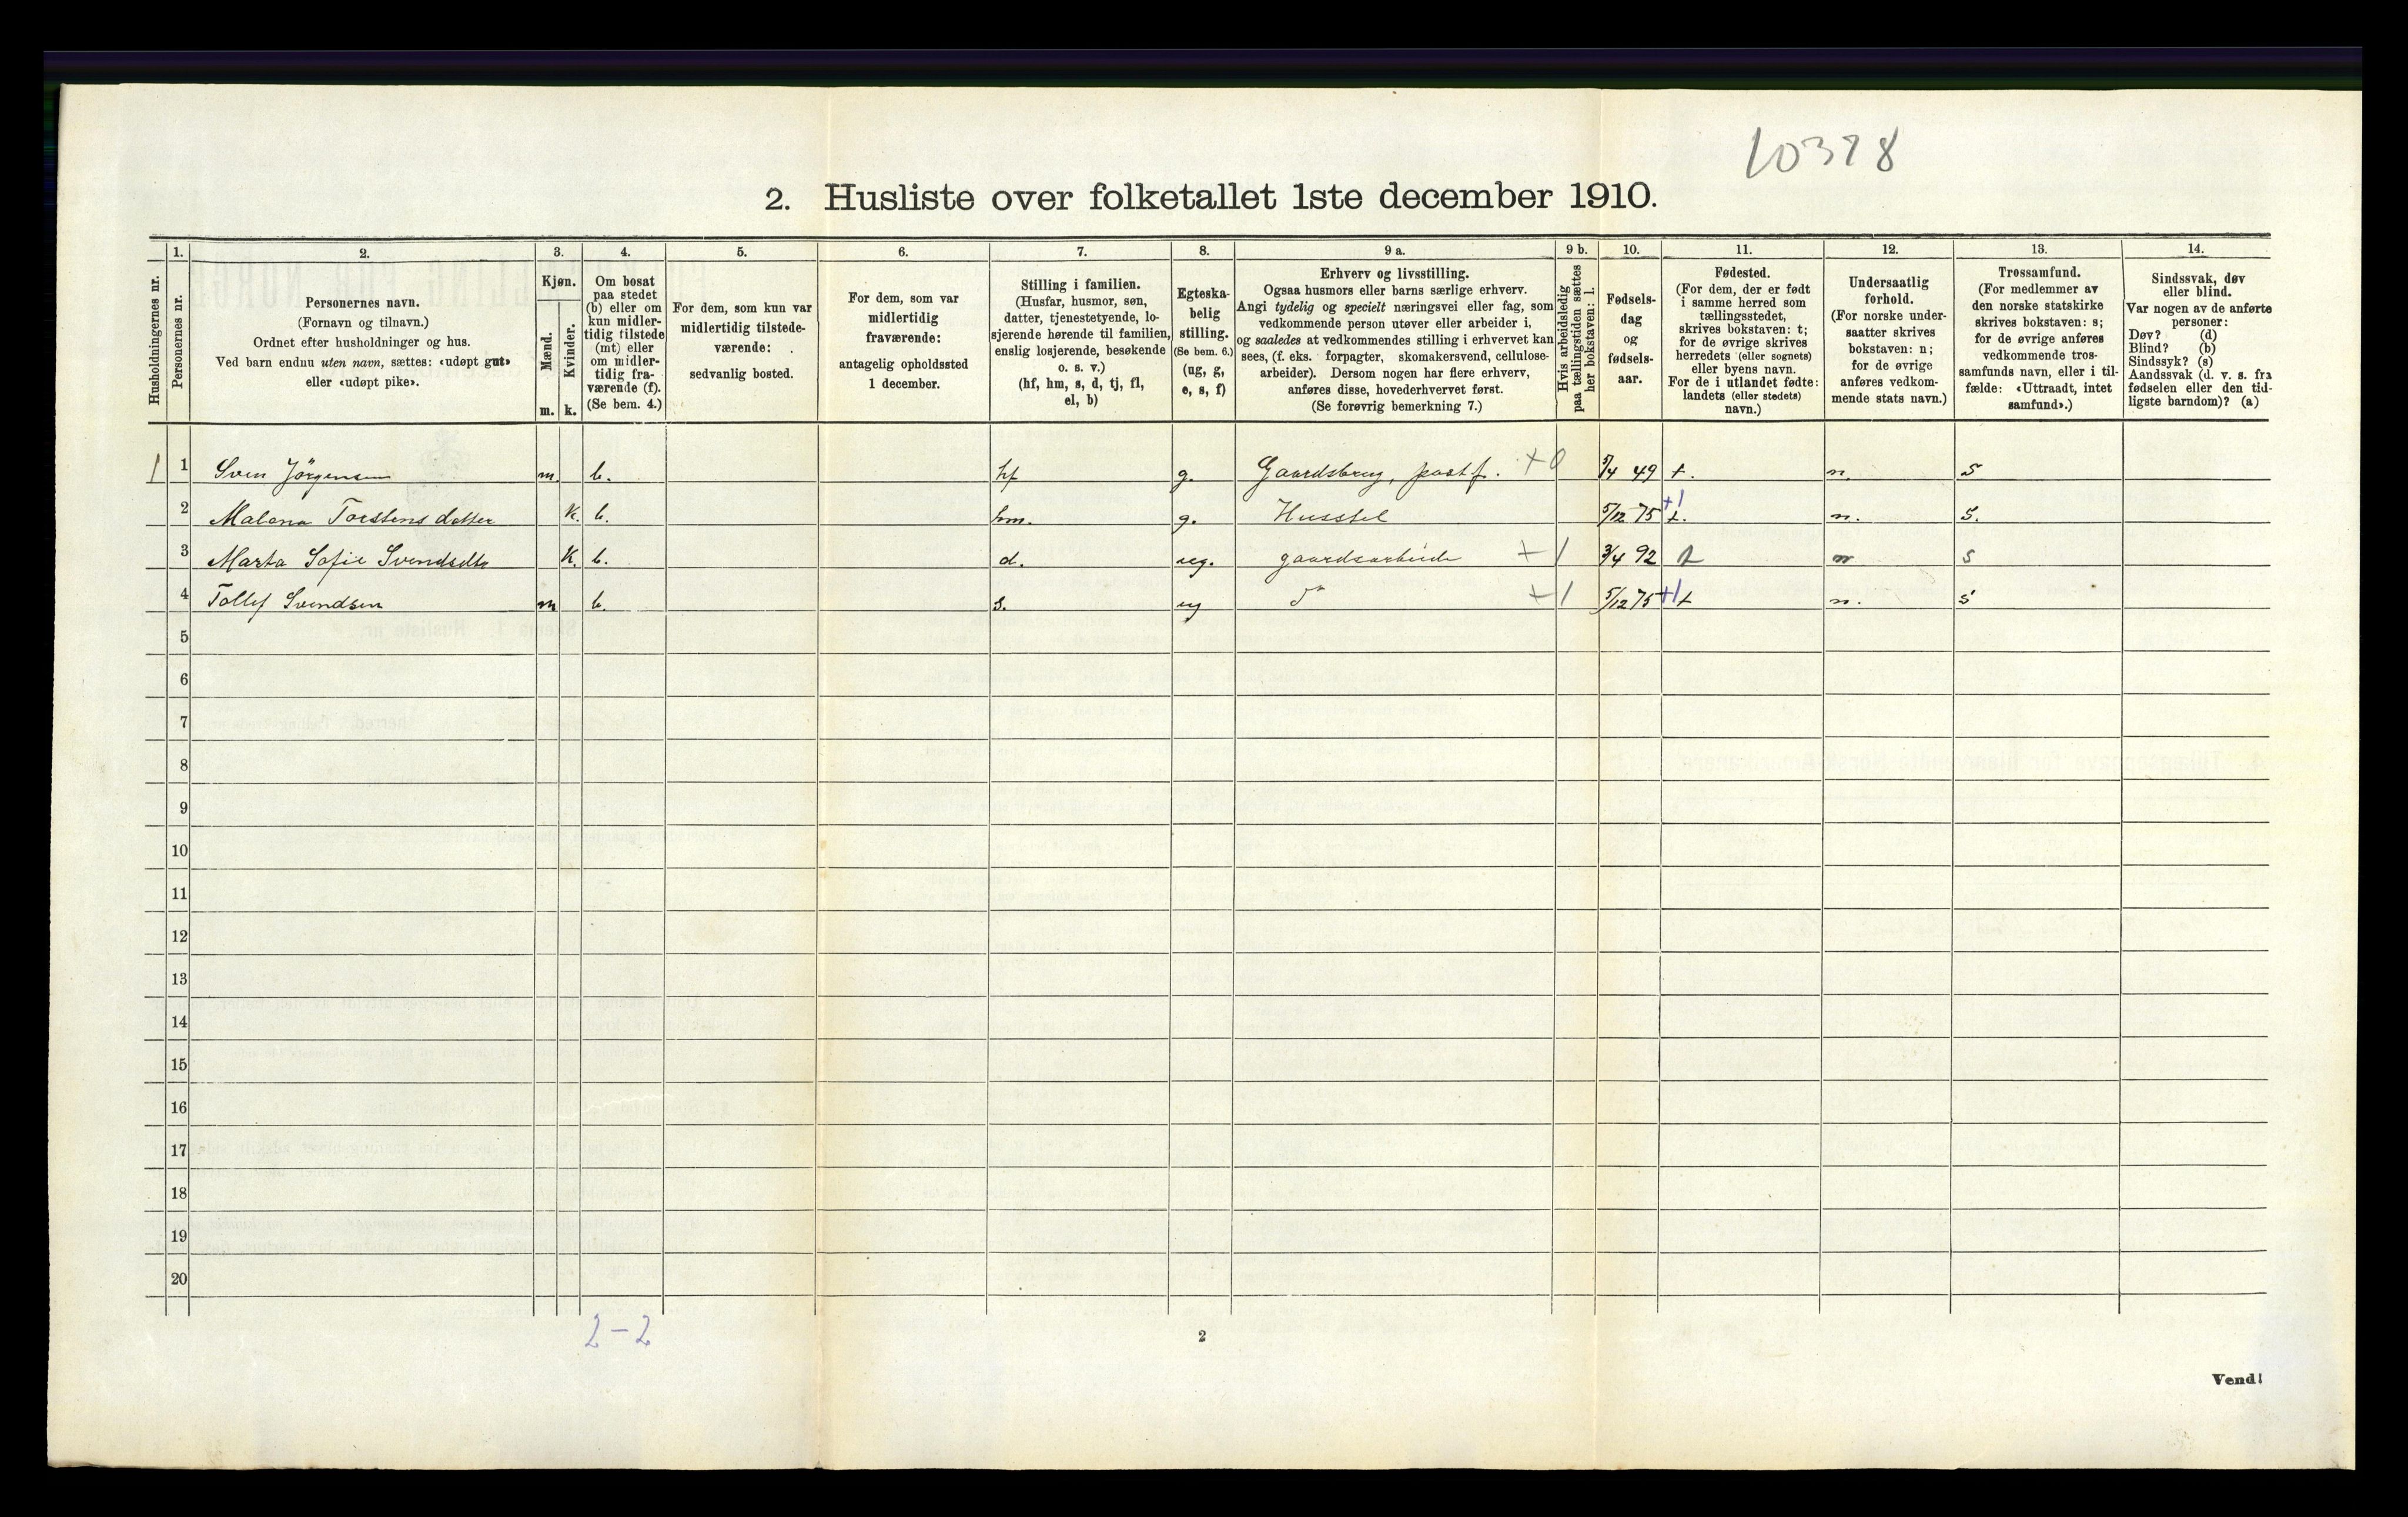 10378
2. Husliste over folketallet 1ste december 1910.
Husholdningernes nr.
1. Personernes nr.
2. Personernes navn.
(Fornavn og tilnavn.)
Ordnet efter husholdninger og hus.
Ved barn endnu uten navn, sættes: «udøpt gut»
eller «udøpt pike».
3. Kjøn.
Mænd. m.
Kvinder. k.
4. Om bosat
paa stedet
(b) eller om
kun midler-
tidig tilstede
(mt) eller
om midler-
tidig fra-
værende (f).
(Se bem. 4.)
5. For dem, som kun var
midlertidig tilstede-
værende:
sedvanlig bosted.
6. For dem, som var
midlertidig
fraværende:
antagelig opholdssted
1 december.
7. Stilling i familien.
(Husfar, husmor, søn,
datter, tjenestetyende, lo-
sjerende hørende til familien,
enslig losjerende, besøkende
o. s. v.)
(hf, hm, s, d, tj, fl,
el, b)
8. Egteska-
belig
stilling.
(Se bem. 6.)
(ug, g,
e, s, f)
9 a. Erhverv og livsstilling.
Ogsaa husmors eller barns særlige erhverv.
Angi tydelig og specielt næringsvei eller fag, som
vedkommende person utøver eller arbeider i,
og saaledes at vedkommendes stilling i erhvervet kan
sees, (f. eks. forpagter, skomakersvend, cellulose-
arbeider). Dersom nogen har flere erhverv,
anføres disse, hovederhvervet først.
(Se forøvrig bemerkning 7.)
9 b. Hvis arbeidsledig
paa tællingstiden sættes
her bokstaven: l.
10. Fødsels-
dag
og
fødsels-
aar.
11. Fødested.
(For dem, der er født
i samme herred som
tællingsstedet,
skrives bokstaven: t;
for de øvrige skrives
herredets (eller sognets)
eller byens navn.
For de i utlandet fødte:
landets (eller stedets)
navn.)
12. Undersaatlig
forhold.
(For norske under-
saatter skrives
bokstaven: n;
for de øvrige
anføres vedkom-
mende stats navn.)
13. Trossamfund.
(For medlemmer av
den norske statskirke
skrives bokstaven: s;
for de øvrige anføres
vedkommende tros-
samfunds navn, eller i til-
fælde: «Uttraadt, intet
samfund».)
14. Sindssvak, døv
eller blind.
Var nogen av de anførte
personer:
Døv? (d)
Blind? (b)
Sindssyk? (s)
Aandssvak (d. v. s. fra
fødselen eller den tid-
ligste barndom)? (a)
1 1 Sven Jörgensen m. b. hf g. Gaardsbrug, postf. +0 5/4 49 t. n. s
2 Malena Torstensdatter k. b. hm. g. Husstel 5/12 75 +1 t. n. s.
3 Marta Sofie Svendsdtr k. b. d. ug. gaardsarbeide +1 3/4 92 t n s
4 Tollef Svendsen m b. s. ug do +1 5/12 75 +1 t n. s
5
6
7
8
9
10
11
12
13
14
15
16
17
18
19
20
2-2
2
Vend!